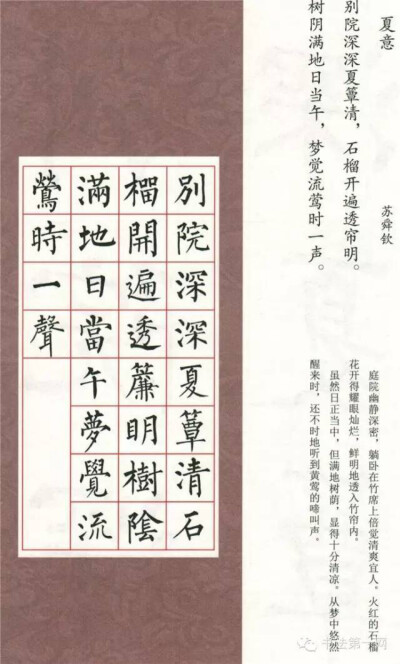 夏意
苏舜钦
别院深深夏簟清，石榴开遍透帘明。
树阴满地日当午，梦觉流莺时一声。
庭院幽静深密，躺卧在竹席上倍觉清爽宜人。火红的石榴
花开得耀眼灿烂，鲜明地透入竹帘内。
虽然日正当中，但满地树荫，显得十分清凉。从梦中悠然
醒来时，还不时地听到黄莺的啼叫声。
別院深深夏簟清石
榴開遍透簾明樹陰
滿地日當午夢覺流
鶯時一聲
书法第一网